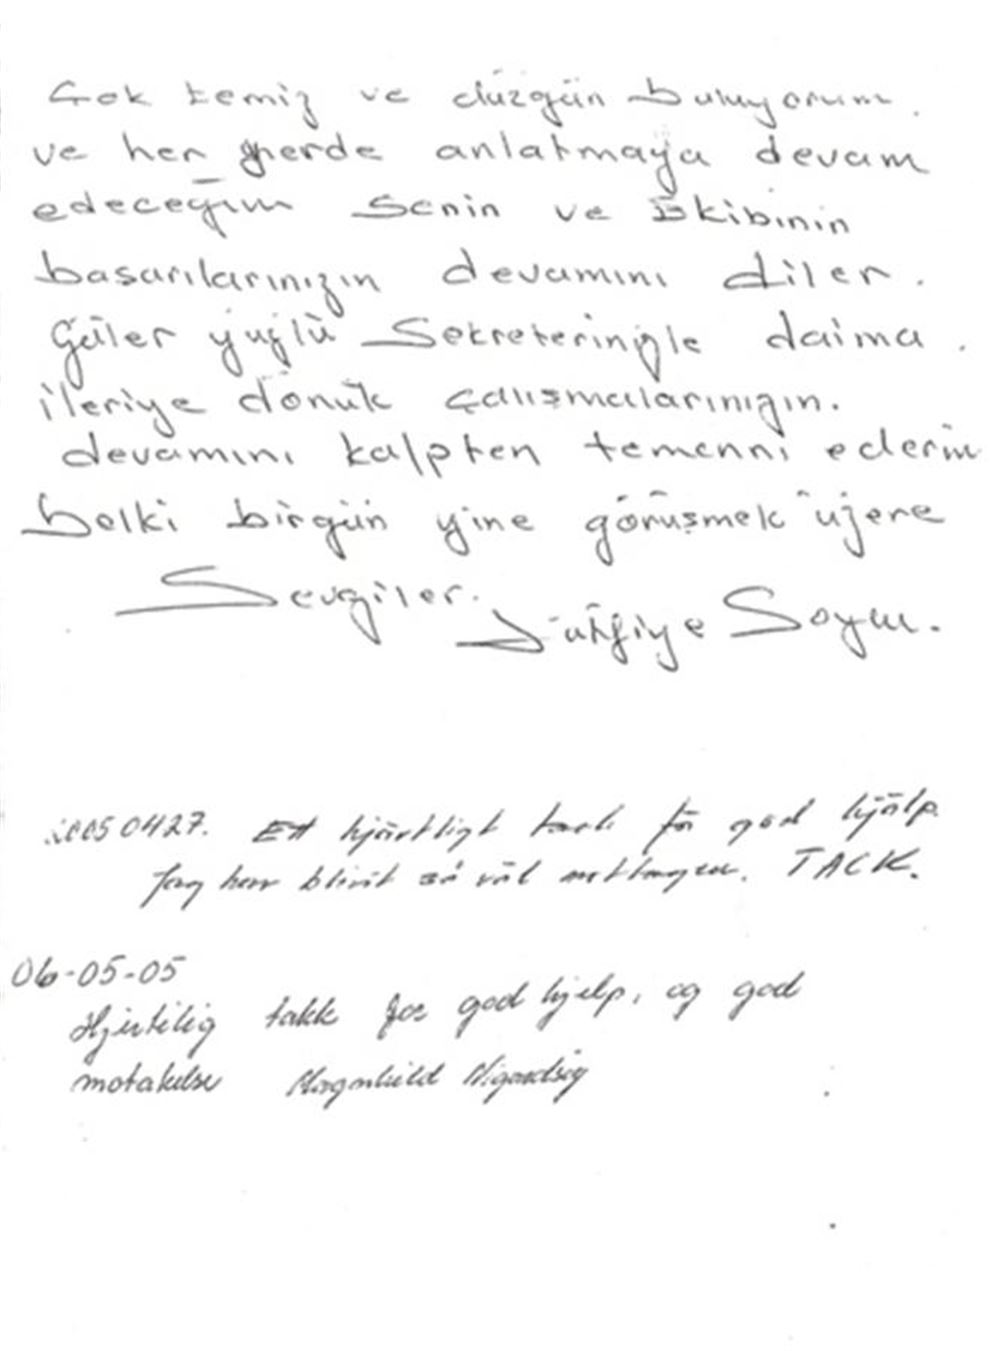 Çok temiz ve düzgün buluyorum.
ve her yerde anlatmaya devam
edeceğim Senin ve Ekibinin
basarılarınızın devamını diler.
Güler yüzlü Sekreterinizle daima.
ileriye dönük çalışmalarınızın.
devamını kalpten temenni ederim
belki birgün yine görüşmek üzere
Sevgiler.
Lütfiye Soyu.
050427. Ett hjärtligt tack för god hjälp.
Jag har blivit så väl mottagen. TACK.
06-05-05
Hjertelig takk for god hjelp, og god
motakelse Magnhild